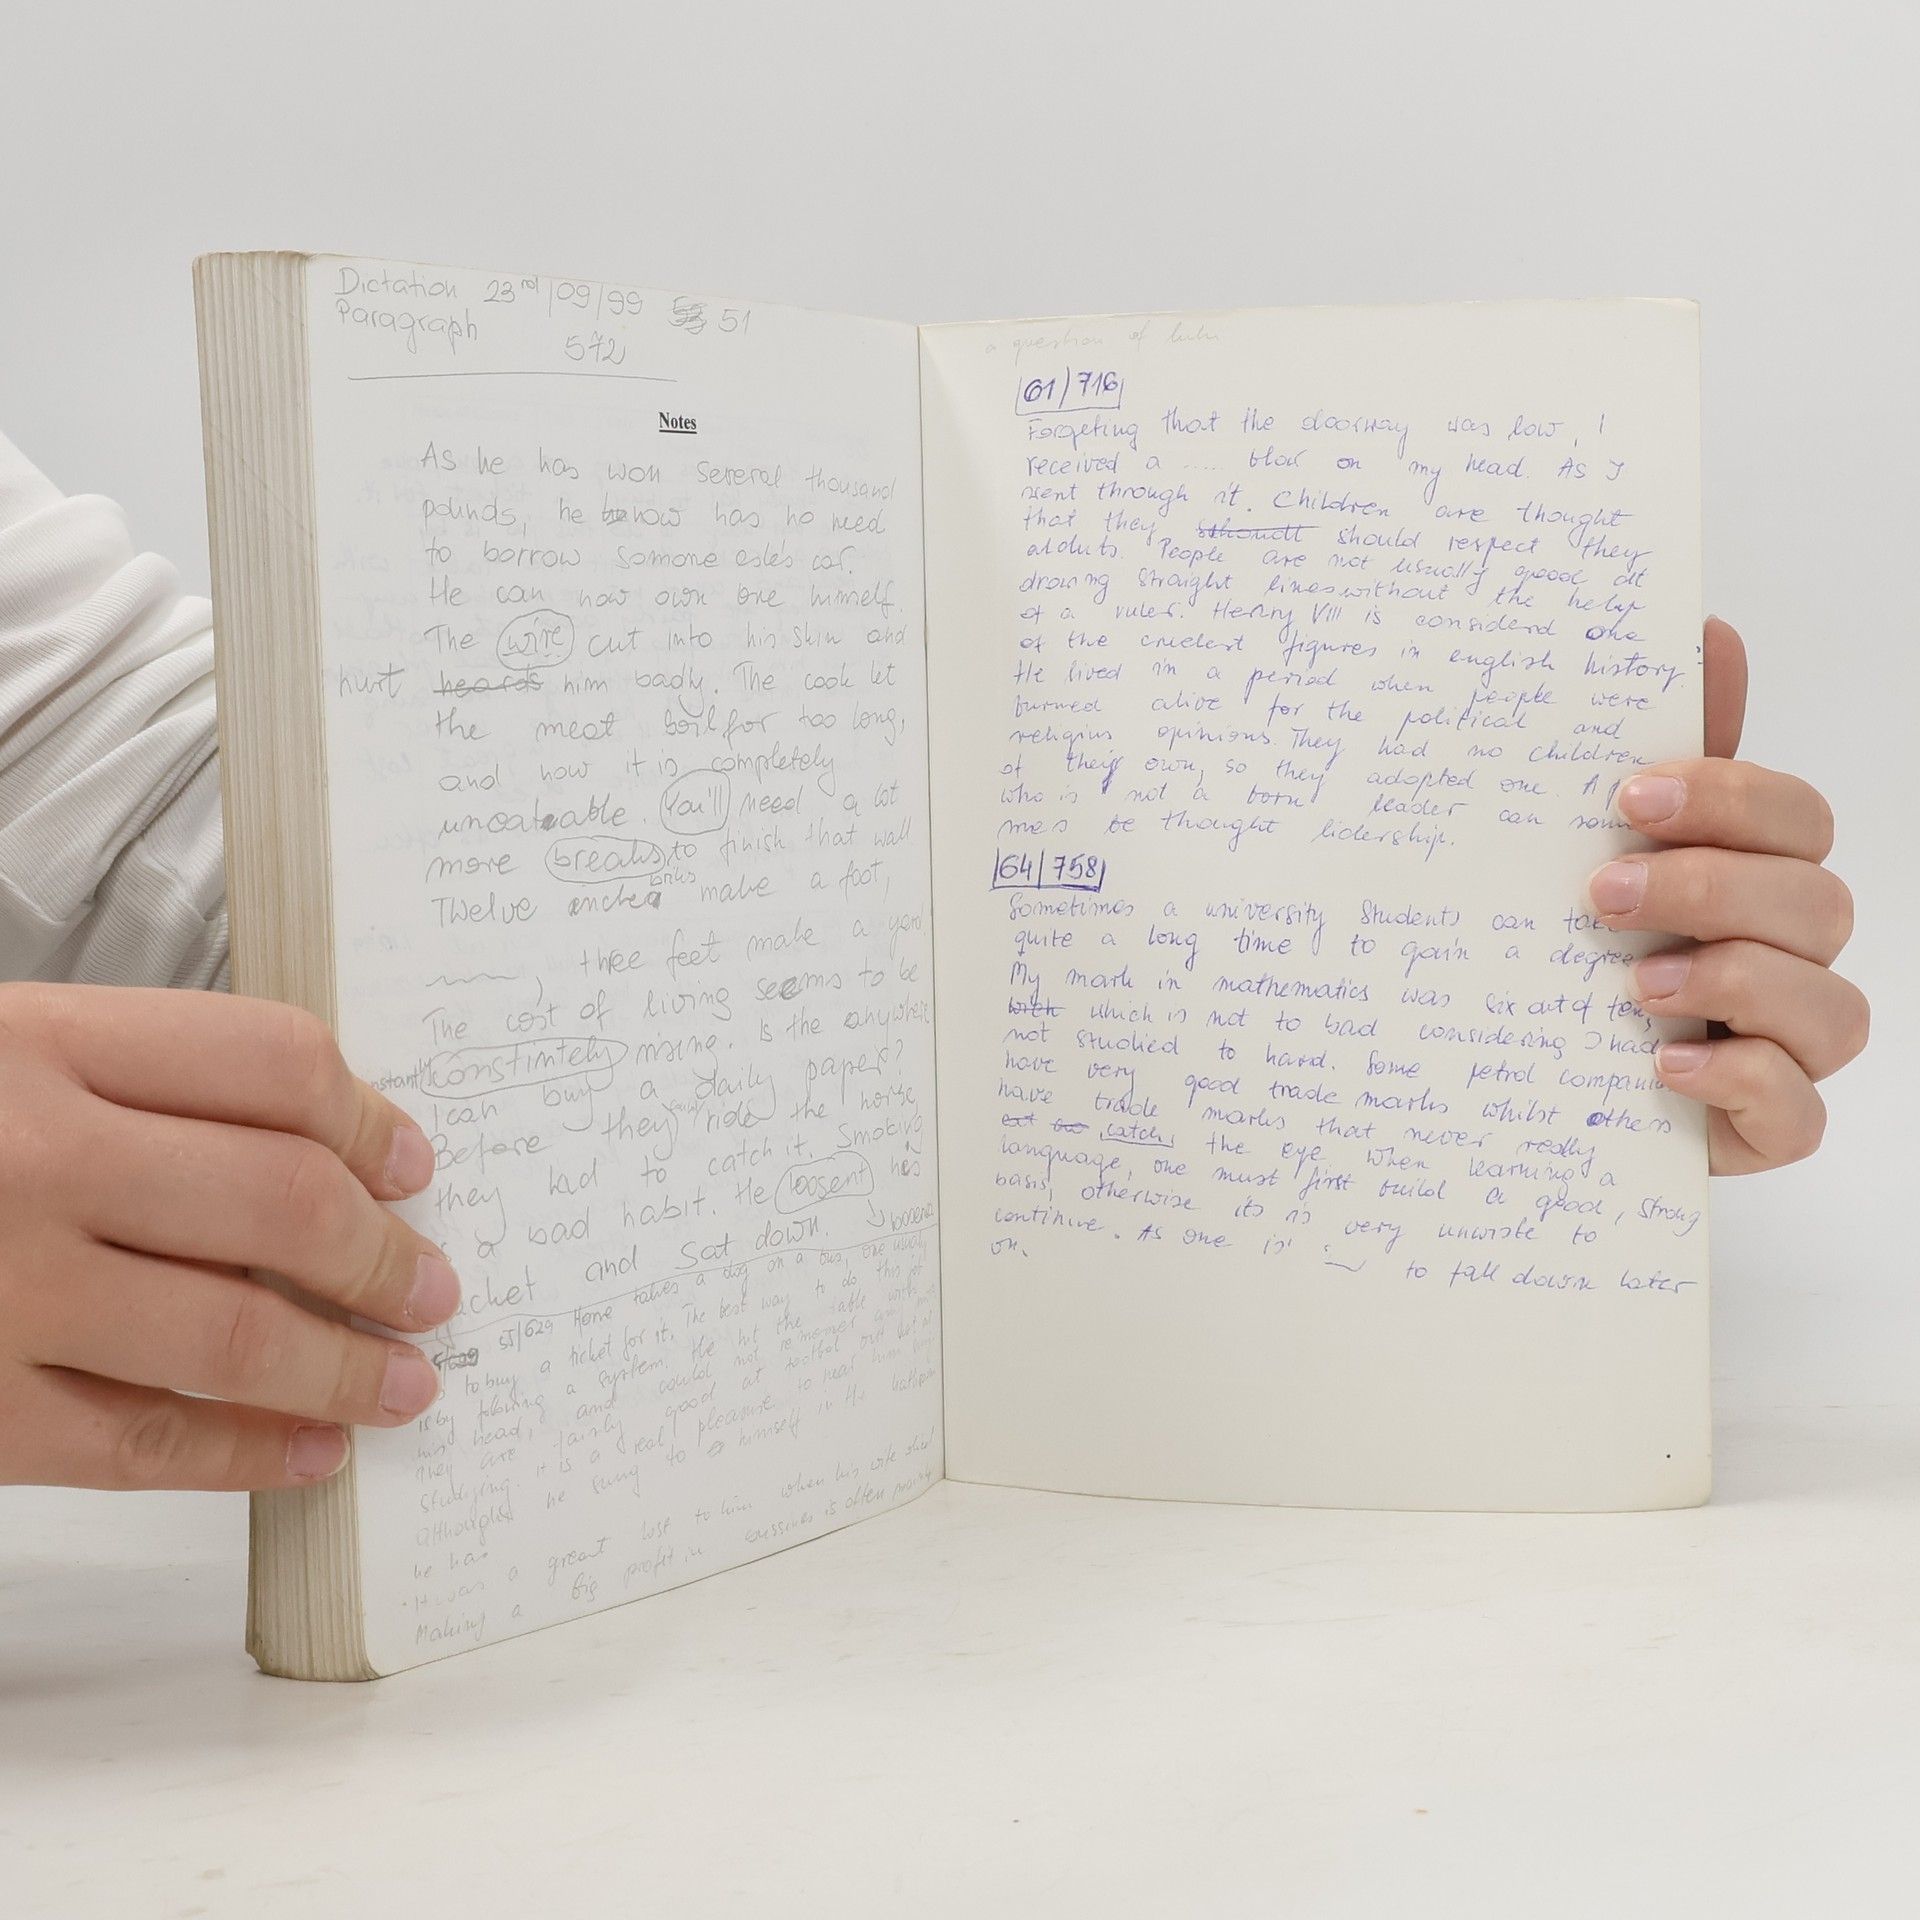 Dictation 23rd/09/99 51
Paragraph
572
Notes
As he has won several thousand
pounds, he now has no need
to borrow somone esle's car.
He can now own one himself.
The wire cut into his skin and
hurt heards him badly. The cook let
the meat boil for too long,
and now it is completely
uneatable. You'll need a lot
more breaks to finish that wall.
briks
Twelve inches make a foot,
, three feet make a yard.
The cost of living seems to be
constintely rising. Is the anywhere
I can buy a daily paper?
Before they could ride the horse
they had to catch it. Smoking
is a bad habit. He loosent his
jacket and sat down. loosened
55/629 Home takes a dog on a bus, one usually
to buy a ticket for it. The best way to do this job
is by following a system. He hit the table with
his head, and could not remember any more
They are fairly good at football but not at
studying. It is a real pleasure to hear him
although he sung to himself in the bathroom
he has
It was a great lost to him when his wife died
Making a big profit in bussines is often mainly
a question of
61/716
Forgeting that the doorway was low, I
received a ..... blow on my head. As I
went through it. Children are thought
that they should respect they
alduts. People are not usually goood at
drowing straight lines without the help
of a ruler. Henry VIII is considerd one
of the cruelest figures in english history.
He lived in a period when people were
burned alive for the political and
religius opinions. They had no children
of their own, so they adopted one. A
who is not a born leader can som
mes be thought lidership.
64/758
Sometimes a university students can take
quite a long time to gain a degree
My mark in mathematics was six out of ten,
wich which is not to bad considering I had
not studied to hard. Some petrol compani
have very good trade marks whilst others
have trade marks that never really
catch the eye. When learning a
language, one must first build a good, strong
basis, otherwise its is very unwiste to
continue. As one is to fall down later
on.